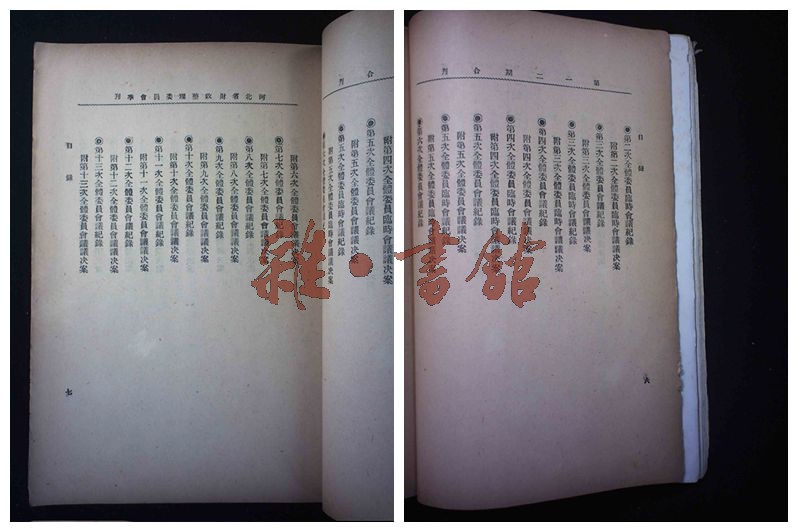 第一二期合刊
目錄
●第二次全體委員臨時會議紀錄
附第二次全體委員臨時會議議決案
●第三次全體委員會議紀錄
附第三次全體委員會議議決案
●第三次全體委員臨時會議紀錄
附第三次全體委員臨時會議議決案
●第四次全體委員會議紀錄
附第四次全體委員會議議決案
●第四次全體委員臨時會議紀錄
附第四次全體委員臨時會議議決案
●第五次全體委員會議紀錄
附第五次全體委員會議議決案
●第五次全體委員臨時會議紀錄
附第五次全體委員臨時會議議決案
●第六次全體委員會議紀錄
六
合刊
附第四次全體委員臨時會議議決案
●第五次全體委員會議紀錄
附第五次全體委員會議議決案
●第五次全體委員臨時會議紀錄
附第五次全體委員臨時會議議決案
河北省財政整理委員會季刊
附第六次全體委員會議議決案
●第七次全體委員會議紀錄
附第七次全體委員會議議決案
●第八次全體委員會議紀錄
附第八次全體委員會議議決案
●第九次全體委員會議紀錄
附第九次全體委員會議議決案
●第十次全體委員會議紀錄
附第十次全體委員會議議決案
●第十一次全體委員會議紀錄
附第十一次全體委員會議議決案
●第十二次全體委員會議紀錄
附第十二次全體委員會議議決案
●第十三次全體委員會議紀錄
附第十三次全體委員會議議決案
目錄
七
雜·書館